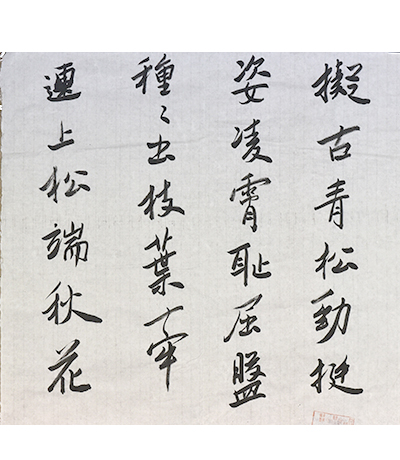 擬古青松勁挺
姿凌霄耻屈盤
種〻出枝葉牽
連上松端秋花